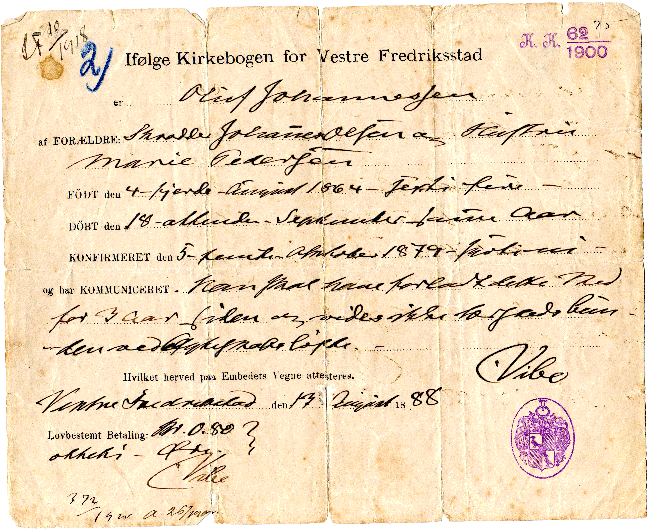 2)
K. K. 62/1900
Ifølge Kirkebogen for Vestre Fredriksstad
er Oluf Johannessen
af FORÆLDRE: Skrædder Johannes Olsen og Hustru
Marie Pedersen
FÖDT den 4 - fjerde - August 1864 - Sexti fire -
DÖBT den 18 - attende - September samme Aar
KONFIRMERET den 5 - femte - Oktober 1879 -
og har KOMMUNICERET. Han skal have forladt dette Sted
for 3 Aar siden og vides ikke
den ved Ægteskabsløfte. -
Hvilket herved paa Embedets Vegne attesteres.
Vibe
Vestre Fredriksstad den 13 August 1888
Lovbestemt Betaling: Kr. 0.80
otteti - Øre.
Vibe